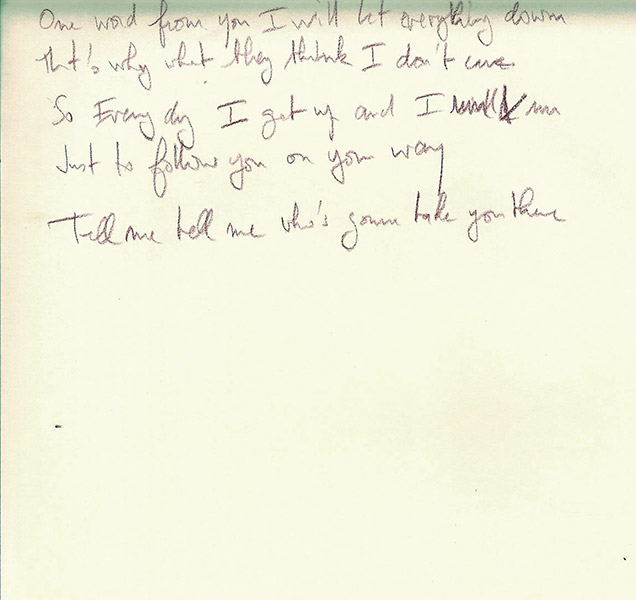 One word from you I will let everything down
That's why what they think I don't care
So Every day I get up and I run
Just to follow you on your way
Tell me tell me who's gonna take you there